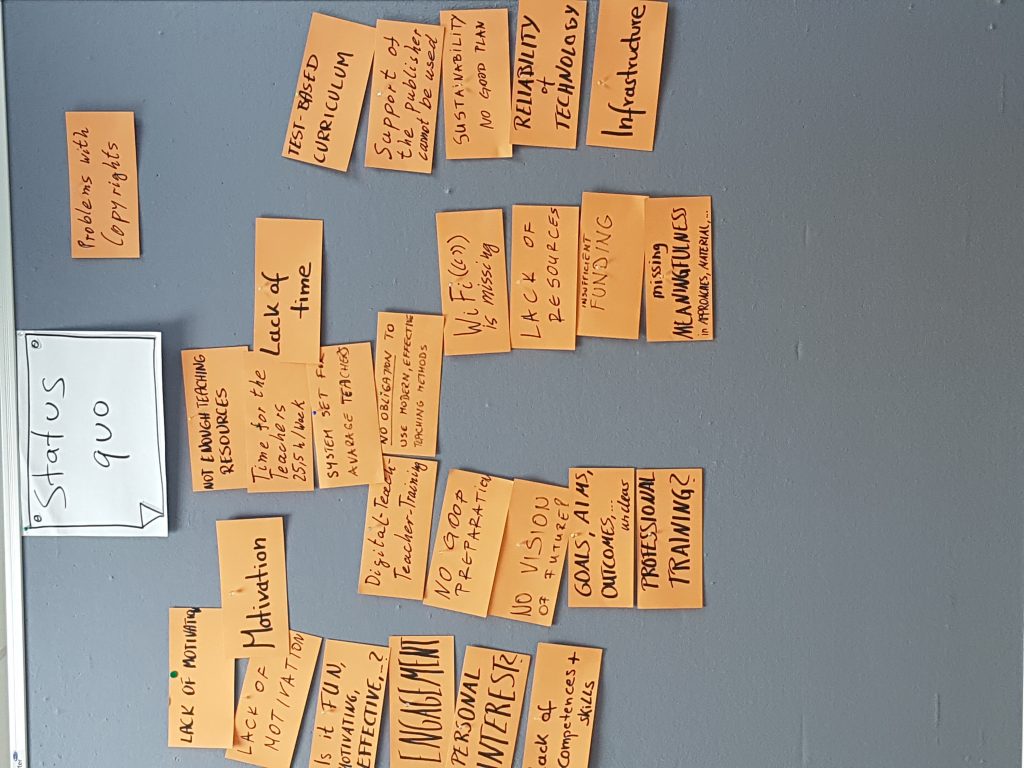 Status
quo
LACK OF MOTIVATION
Motivation
LACK OF
MOTIVATION
Is it FUN,
MOTIVATING,
EFFECTIVE,...?
ENGAGEMENT
PERSONAL
INTEREST?
Lack of
Competences +
skills
NOT ENOUGH TEACHING
RESOURCES
Time for the
Teachers
25,5 h/Week
SYSTEM SET FOR
AVARAGE TEACHERS
NO OBLIGATION TO
USE MODERN, EFFECTIVE
TEACHING METHODS
Digital-Teach
Teacher-Training
NO GOOD
PREPARATION
NO VISION
OF FUTURE??
GOALS, AIMS,
OUTCOMES,...
unclear
PROFESSIONAL
TRAINING?
Lack of
time
WiFi((()))
is missing
LACK OF
RESOURCES
INSUFFICIENT
FUNDING
missing
MEANINGFULNESS
in APPROACHES, MATERIAL,...
Problems with
Copyrights
TEST-BASED
CURRICULUM
Support of
the publisher
cannot be used
SUSTAINABILITY
NO GOOD PLAN
RELIABILITY
of
TECHNOLOGY
Infrastructure